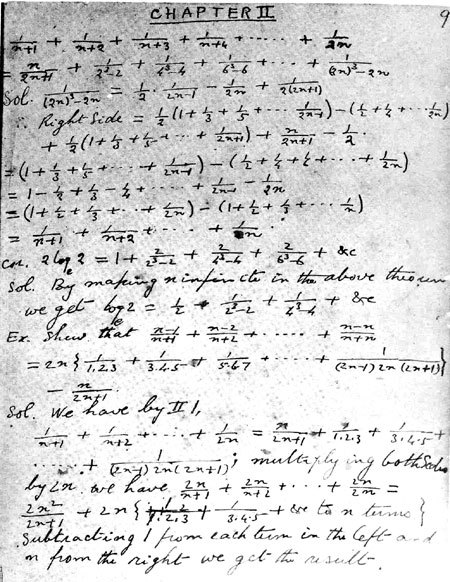 CHAPTER II
9
1/(n+1) + 1/(n+2) + 1/(n+3) + 1/(n+4) + ...... + 1/2n
= n/(2n+1) + 1/(2³-2) + 1/(4³-4) + 1/(6³-6) + ... + 1/((2n)³-2n)
Sol. 1/((2n)³-2n) = 1/2 · 1/(2n-1) - 1/2n + 1/(2(2n+1))
∴ Right Side = 1/2(1 + 1/3 + 1/5 + ... 1/(2n-1)) - (1/2 + 1/4 + ... 1/2n)
+ 1/2(1 + 1/3 + 1/5 + ... + 1/(2n+1)) + n/(2n+1) - 1/2.
= (1 + 1/3 + 1/5 + ... + 1/(2n-1)) - (1/2 + 1/4 + 1/6 + ... + 1/2n)
= 1 - 1/2 + 1/3 - 1/4 + ... + 1/(2n-1) - 1/2n
= (1 + 1/2 + 1/3 + ... + 1/2n) - (1 + 1/2 + 1/3 + ... 1/n)
= 1/(n+1) + 1/(n+2) + ... + 1/2n.
Cor. 2 logₑ2 = 1 + 2/(2³-2) + 2/(4³-4) + 2/(6³-6) + &c
Sol. By making n infinite in the above theorem
we get logₑ2 = 1/2 + 1/(2³-2) + 1/(4³-4) + &c
Ex. Shew that (n-1)/(n+1) + (n-2)/(n+2) + ...... + (n-n)/(n+n)
= 2n { 1/1.2.3 + 1/3.4.5 + 1/5.6.7 + ... + 1/((2n-1) 2n (2n+1)) }
- n/(2n+1).
Sol. We have by II 1,
1/(n+1) + 1/(n+2) + ... + 1/2n = n/(2n+1) + 1/1.2.3 + 1/3.4.5 +
...... + 1/((2n-1) 2n (2n+1)); multiplying both sides
by 2n we have 2n/(n+1) + 2n/(n+2) + ... + 2n/2n =
2n²/(2n+1) + 2n { 1/1.2.3 + 1/3.4.5 + &c to n terms }
Subtracting 1 from each term in the left and
n from the right we get the result.